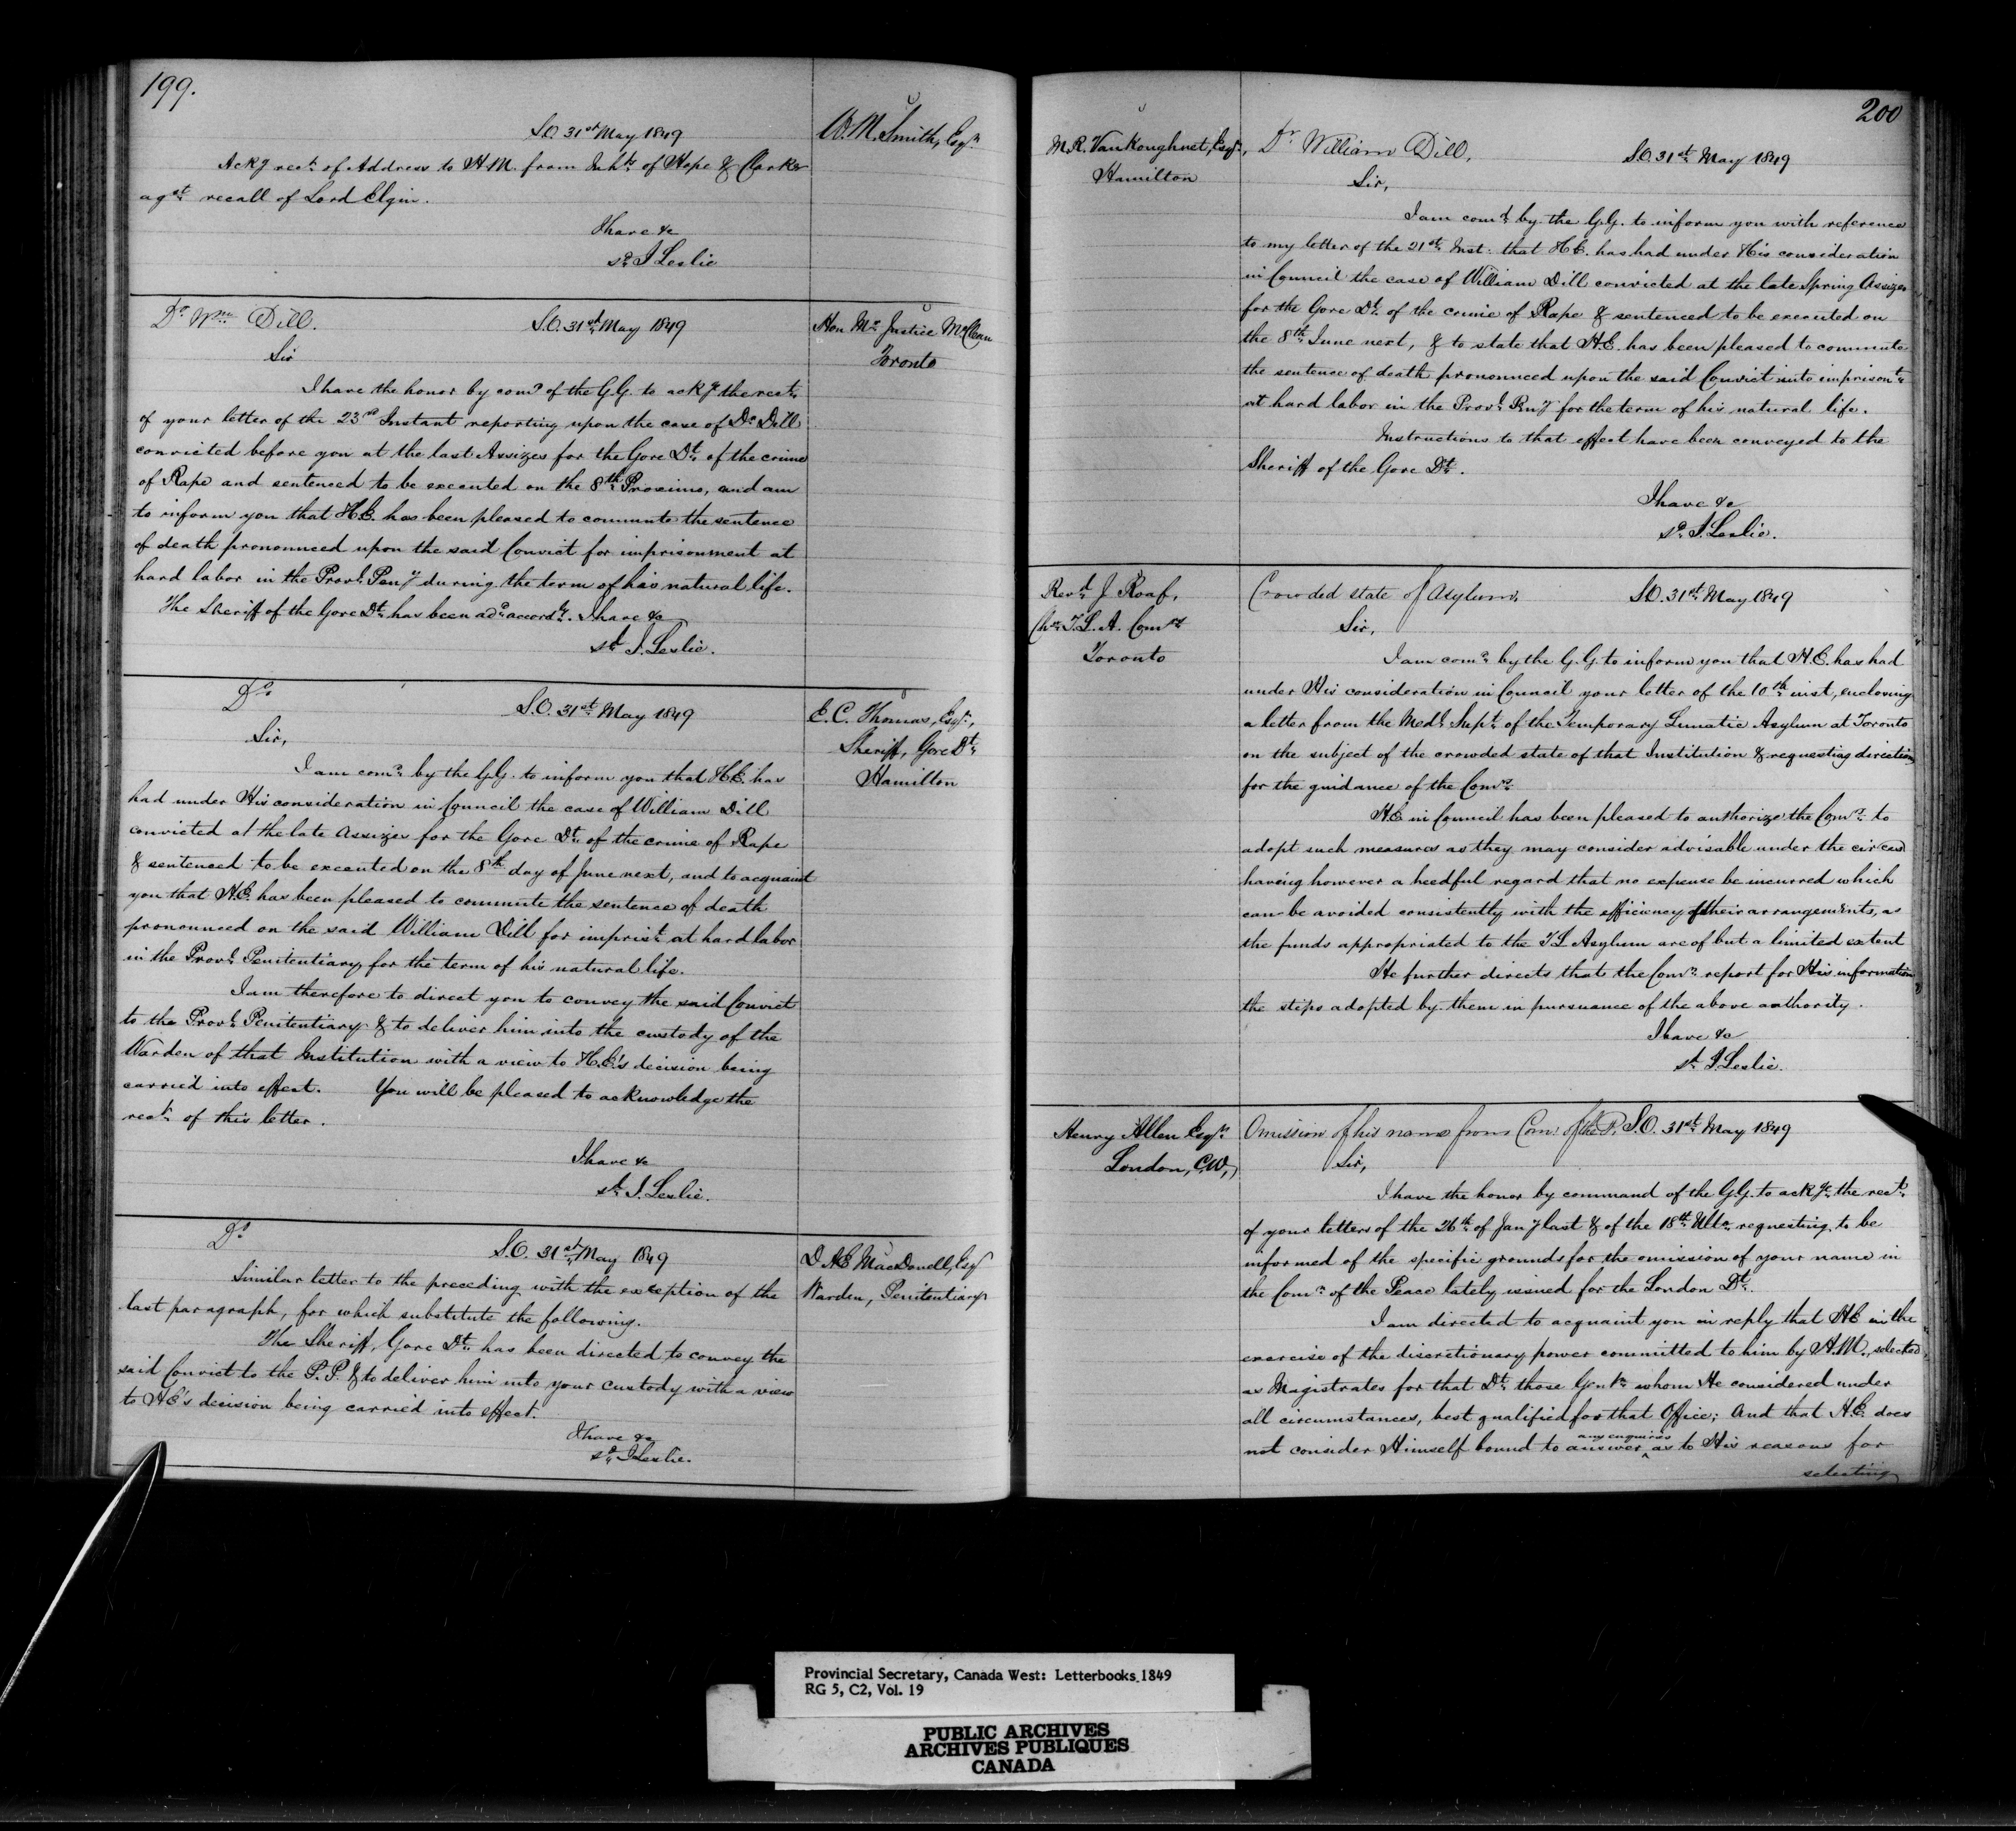 199.
S.O. 31st May 1849
W. M. Smith, Esqr
Ackg rect of Address to H.M. from Inhts of Hope & Clarke
agst recall of Lord Elgin.
I have &c
sd J Leslie
Dr Wm Dill.
S.O. 31st May 1849
Hon Mr Justice McLean
Toronto
Sir
I have the honor by comd of the G.G. to ackg the rect
of your letter of the 23rd Instant reporting upon the case of Dr Dill
convicted before you at the last Assizes for the Gore Dt of the crime
of Rape and sentenced to be executed on the 8th Proximo, and am
to inform you that H.E. has been pleased to commute the sentence
of death pronounced upon the said Convict for imprisonment at
hard labor in the Provl Peny during the term of his natural life.
The Sheriff of the Gore Dt has been add accordy. I have &c
sd J. Leslie.
Do
S.O. 31st May 1849
E. C. Thomas, Esqr,
Sheriff, Gore Dt
Hamilton
Sir,
I am comd by the G.G. to inform you that H.E. has
had under His consideration in Council the case of William Dill
convicted at the late Assizes for the Gore Dt of the crime of Rape
& sentenced to be executed on the 8th day of June next, and to acquaint
you that H.E. has been pleased to commute the sentence of death
pronounced on the said William Dill for imprist at hard labor
in the Provl Penitentiary for the term of his natural life.
I am therefore to direct you to convey the said Convict
to the Provl Penitentiary & to deliver him into the custody of the
Warden of that Institution with a view to H.E.'s decision being
carried into effect. You will be pleased to acknowledge the
rect of this letter.
I have &c
sd J. Leslie.
Do
S.O. 31st May 1849
D. AE MacDonell, Esqr
Warden, Penitentiary
Similar letter to the preceding with the exception of the
last paragraph, for which substitute the following.
The Sheriff, Gore Dt has been directed to convey the
said Convict to the P.P. & to deliver him into your custody with a view
to H.E's decision being carried into effect.
I have &c
sd J Leslie.
200
M. R. VanKoughnet, Esqr,
Hamilton
Dr William Dill,
S.O. 31st May 1849
Sir,
I am comd by the G.G. to inform you with reference
to my letter of the 21st Inst: that H.E. has had under His consideration
in Council the case of William Dill convicted at the late Spring Assizes
for the Gore Dt of the crime of Rape & sentenced to be executed on
the 8th June next, & to state that H.E. has been pleased to commute
the sentence of death pronounced upon the said Convict into imprisont
at hard labor in the Provl Peny for the term of his natural life.
Instructions to that effect have been conveyed to the
Sheriff of the Gore Dt.
I have &c
sd J. Leslie.
Revd J. Roaf,
Chn T.L.A. Comrs
Toronto
Crowded state of Asylum.
S.O. 31st May 1849
Sir,
I am comd by the G.G. to inform you that H.E. has had
under His consideration in Council your letter of the 10th inst, enclosing
a letter from the Medl Supt of the Temporary Lunatic Asylum at Toronto
on the subject of the crowded state of that Institution & requesting directions
for the guidance of the Comrs
H.E in Council has been pleased to authorize the Comrs to
adopt such measures as they may consider advisable under the circes
having however a heedful regard that no expense be incurred which
can be avoided consistently with the efficiency of their arrangements, as
the funds appropriated to the T L Asylum are of but a limited extent
He further directs that the Comrs report for His information
the steps adopted by them in pursuance of the above authority.
I have &c
sd J Leslie.
Henry Allen Esqr
London, C.W,
Omission of his name from Comn of the P.
S.O. 31st May 1849
Sir,
I have the honor by command of the G.G. to ackge the rect
of your letters of the 26th of Jany last & of the 18th Ulto requesting to be
informed of the specific grounds for the omission of your name in
the Comn of the Peace lately issued for the London Dt.
I am directed to acquaint you in reply that H.E in the
exercise of the discretionary power committed to him by H.M., selected,
as Magistrates for that Dt those Gentn whom He considered under
all circumstances, best qualified for that Office; And that H.E. does
any enquiries
not consider Himself bound to answer as to His reasons for
selecting
Provincial Secretary, Canada West: Letterbooks 1849
RG 5, C2, Vol. 19
PUBLIC ARCHIVES
ARCHIVES PUBLIQUES
CANADA